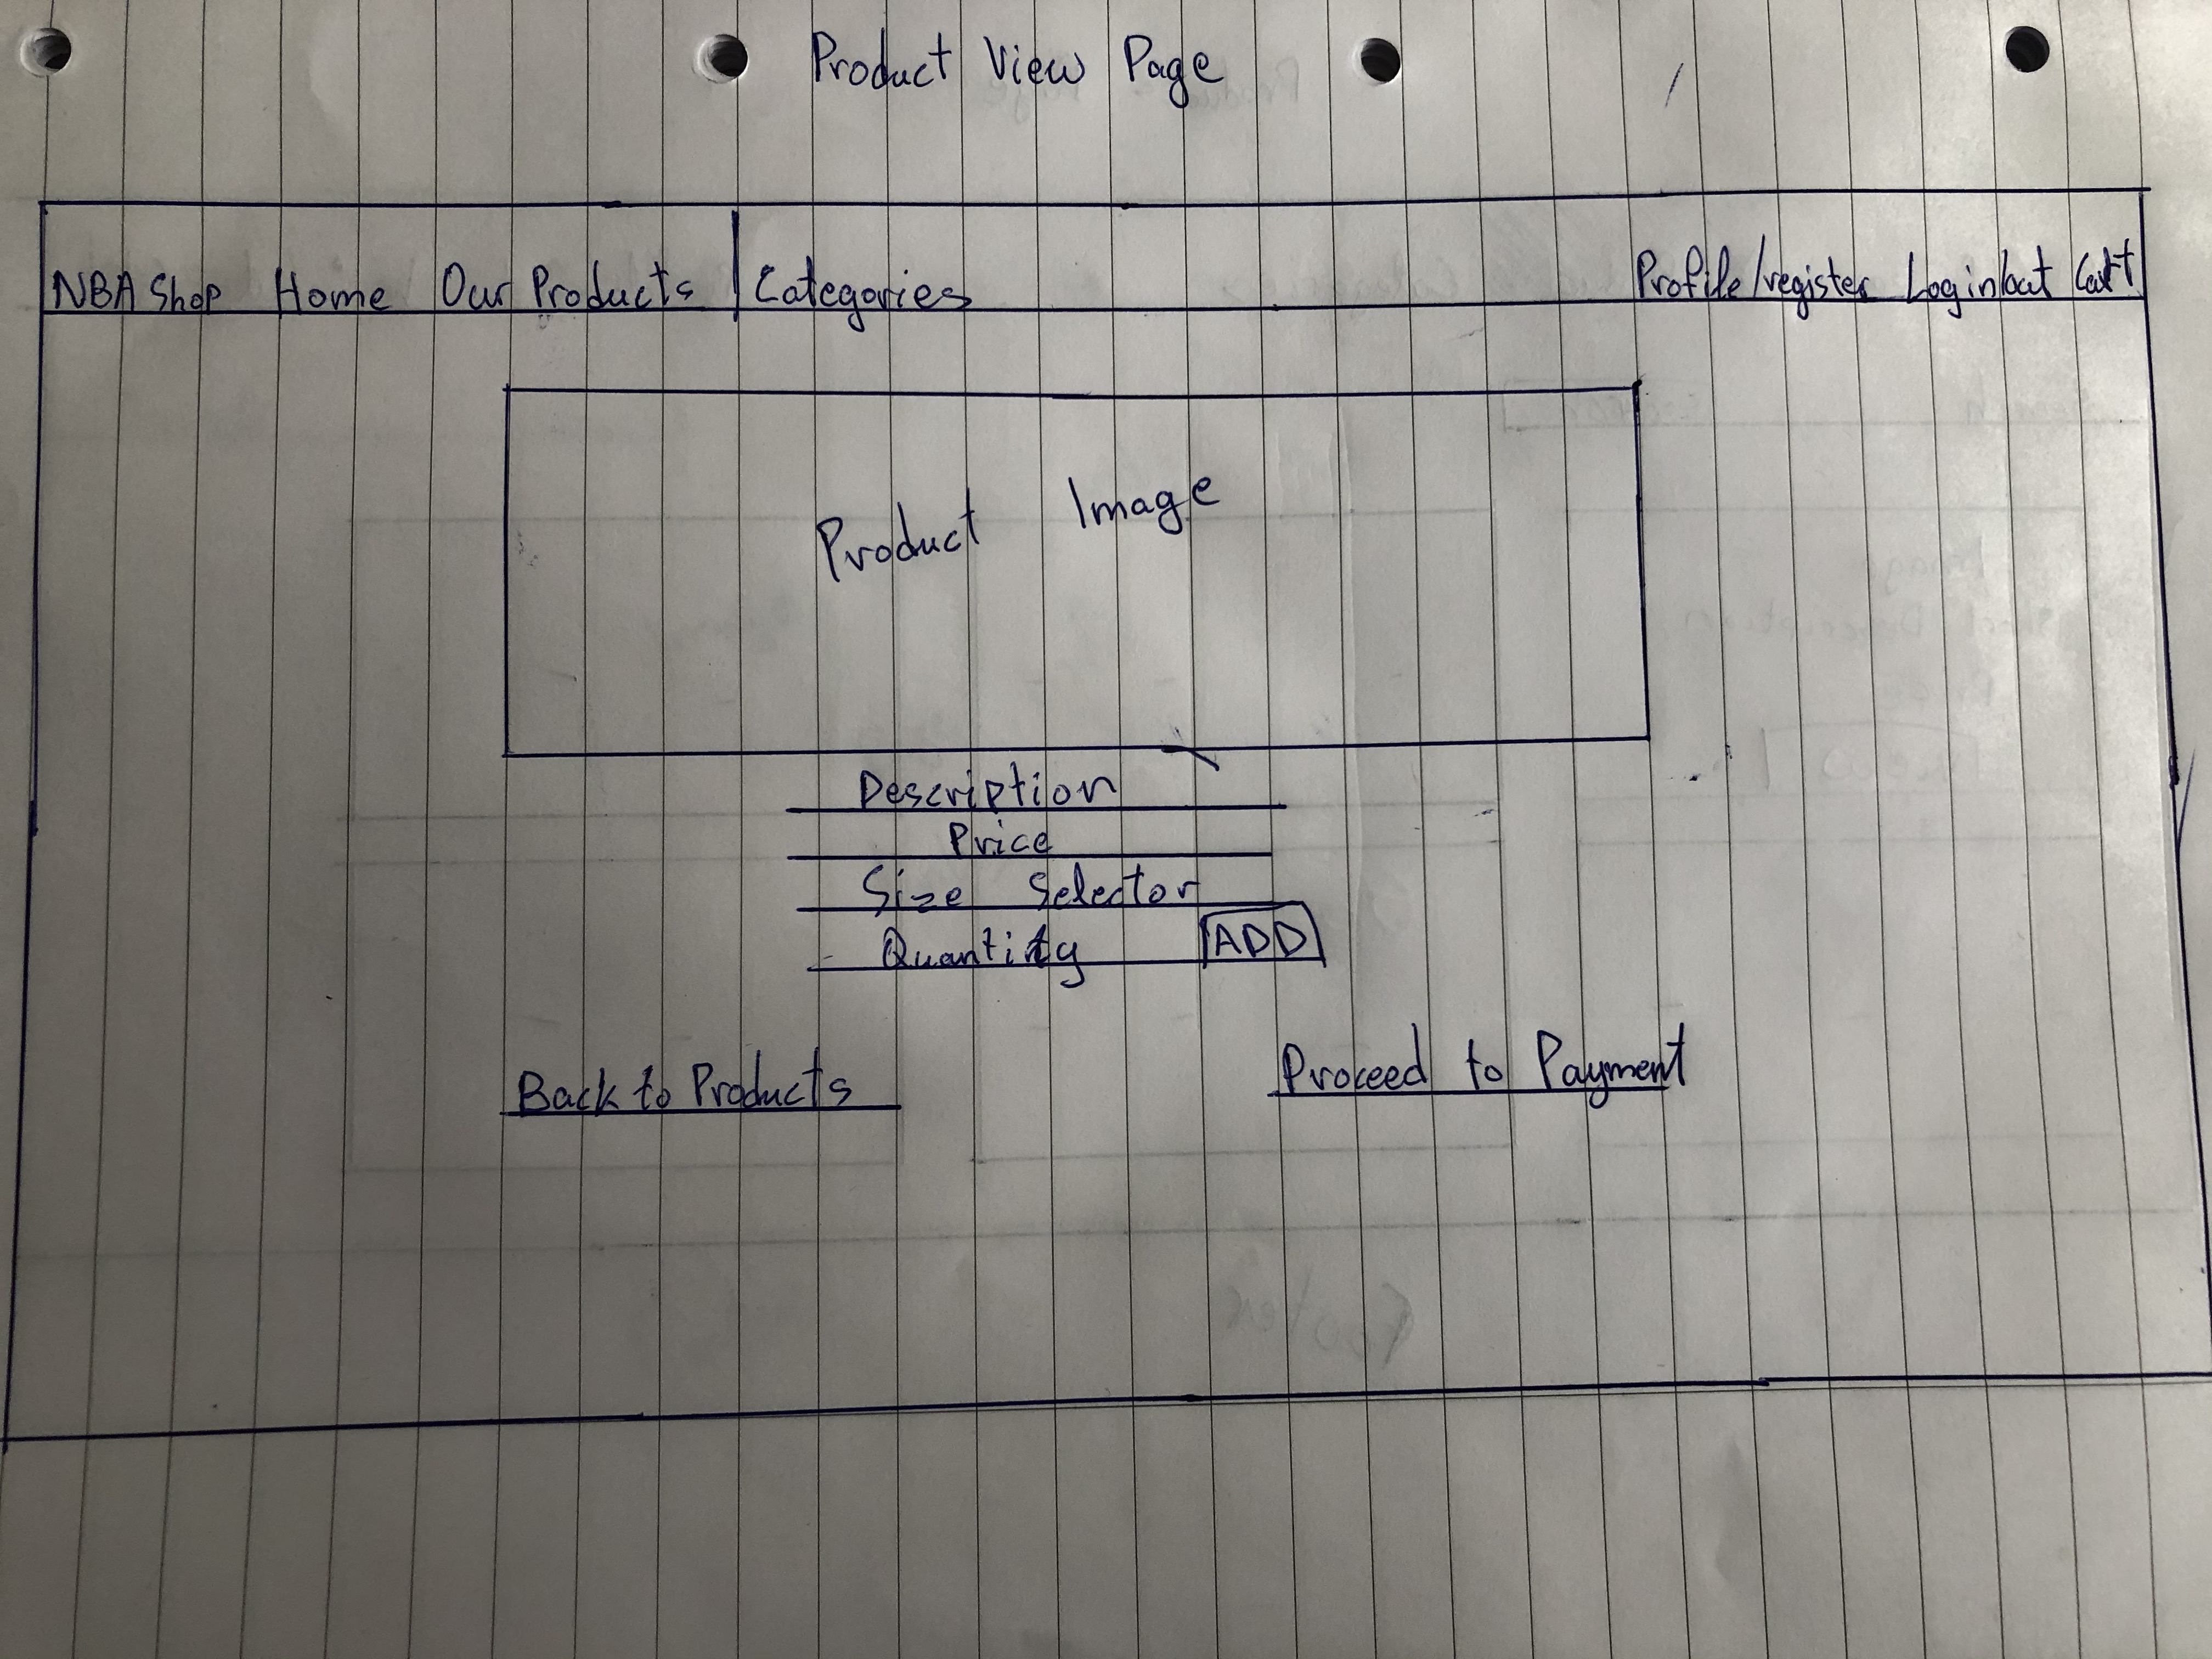 Product View Page
NBA Shop Home Our Products | Categories Profile/register Login/out Cart
Product Image
Description
Price
Size Selector
Quantity ADD
Back to Products Proceed to Payment